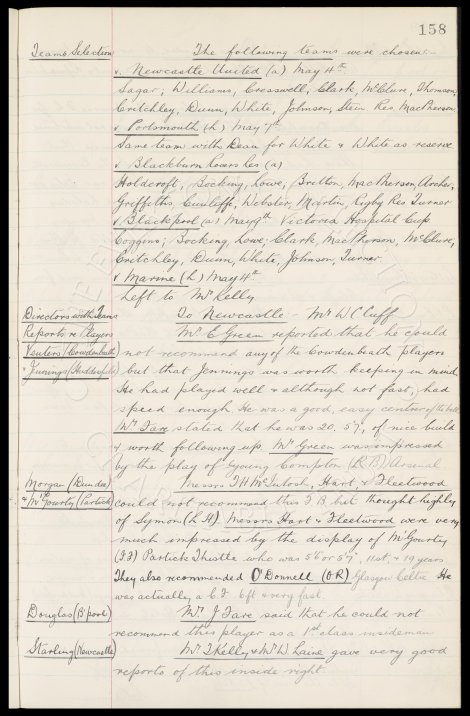 158
Teams Selection The following teams were chosen:-
v. Newcastle United (a) May 4th
Sagar; Williams, Cresswell, Clark, McClure, Thomson,
Critchley, Dunn, White, Johnson, Stein Res MacPherson
v Portsmouth (h) May 7th
Same team with Dean for White & White as reserve
v Blackburn Rovers Res (a)
Holdcroft, Bocking, Lowe, Britton, MacPherson, Archer,
Griffiths, Cunliffe, Webster, Martin, Rigby Res Turner
v Blackpool (a) May 9th Victoria Hospital Cup
Coggins; Bocking, Lowe; Clark, MacPherson, McClure,
Critchley, Dunn, White, Johnson, Turner
v Marine (h) May 4th
Left to Mr Kelly
Directors with Teams To Newcastle - Mr W C Cuff
Reports re Players Mr E Green reported that he could
(Cowdenbeath) not recommend any of the Cowdenbeath players
& Jennings (Huddersfield) but that Jennings was worth keeping in mind
He had played well & although not fast, had
speed enough. He was a good, easy centrer of the ball
Mr Fare stated that he was 20. 5'9", of nice build
& worth following up. Mr Green was impressed
by the play of young Compton (R.B) Arsenal
Morgan (Dundee) Messrs T H McIntosh, Hart, & Fleetwood
& McGourty (Partick) could not recommend this F B but thought highly
of Symon (L.H). Messrs Hart & Fleetwood were very
much impressed by the display of McGourty
Partick Thistle who was 5'6" or 5'7", 11st, & 19 years
They also recommended O'Donnell (OR) Glasgow Celtic He
was actually a C.F 6ft & very fast.
Douglas (B'pool) Mr J Fare said that he could not
recommend this player as a 1st class insideman
Starling (Newcastle) Mr T Kelly & Mr W. Laine gave very good
reports of this inside right.